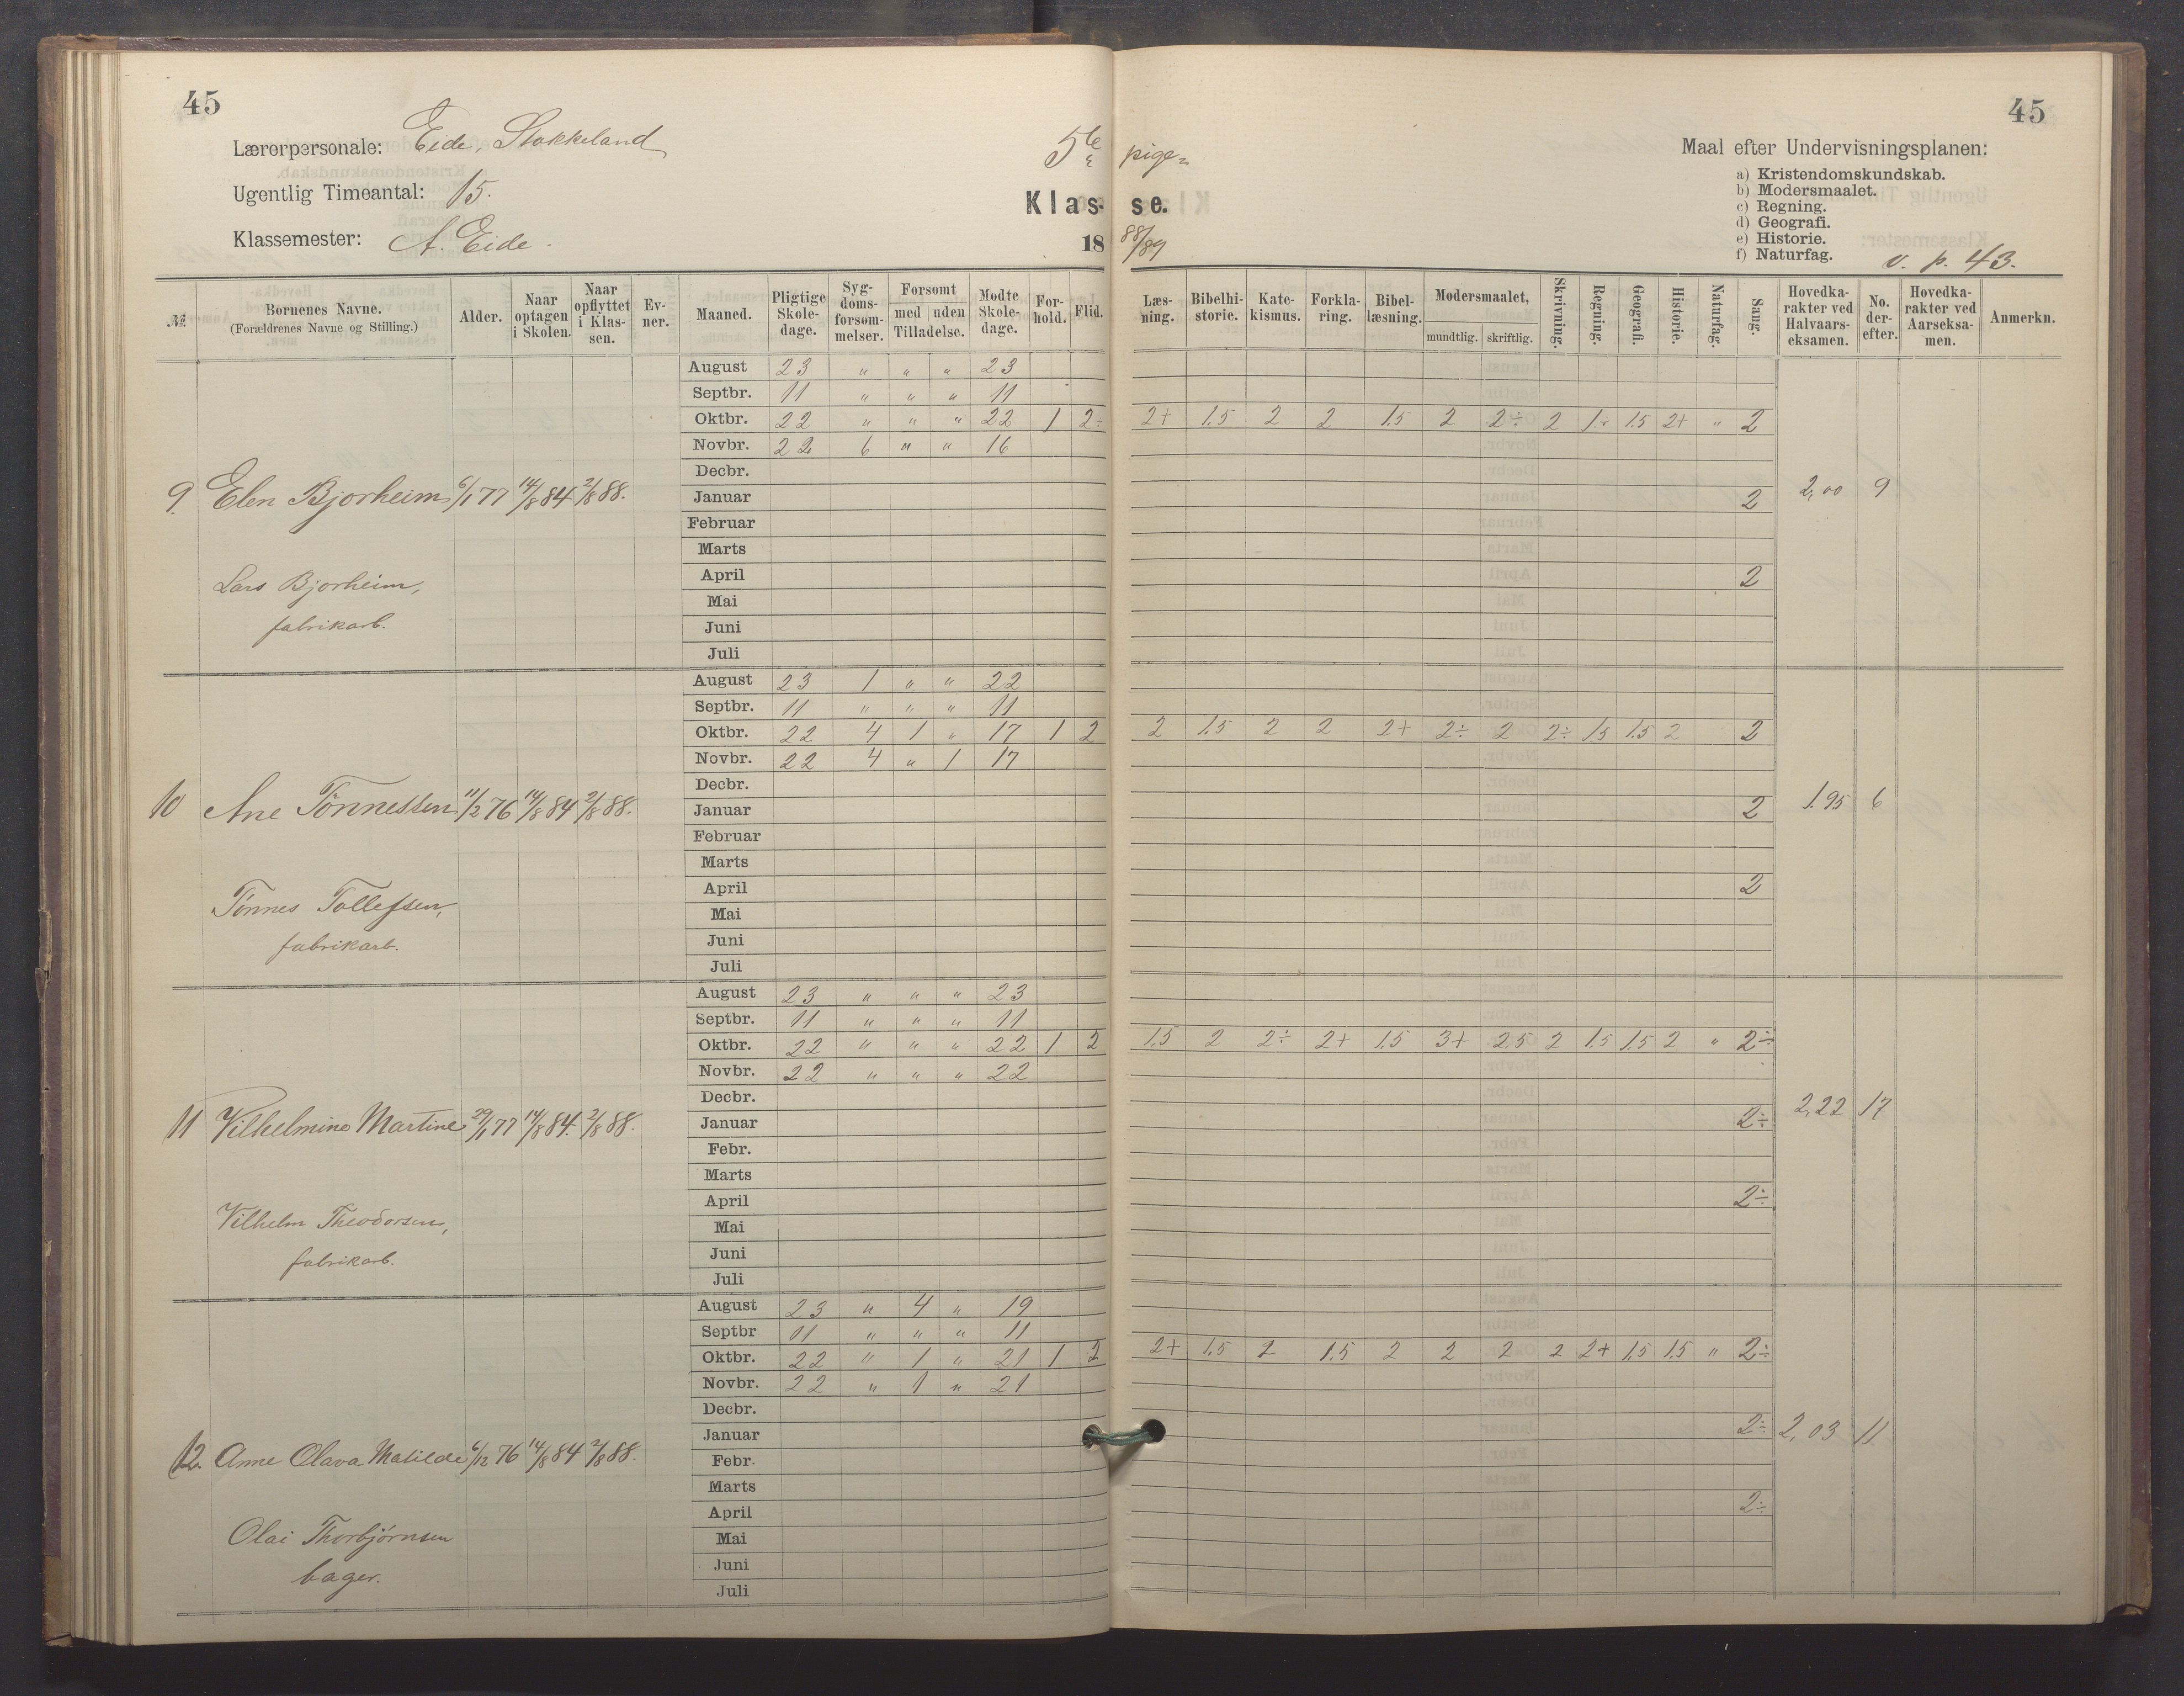 45
45
Lærerpersonale: Eide, Stokkeland
Ugentlig Timeantal: 15.
Klassemester: A. Eide.
5te a pige-
Klasse.
18 88/89
Maal efter Undervisningsplanen:
a) Kristendomskundskab.
b) Modersmaalet.
c) Regning.
d) Geografi.
e) Historie.
f) Naturfag. v. p. 43.
№ Børnenes Navne. (Forældrenes Navne og Stilling.) Alder. Naar optagen i Skolen. Naar opflyttet i Klassen. Evner. Maaned. Pligtige Skoledage. Sygdomsforsømmelser. Forsømt med uden Tilladelse. Mødte Skoledage. Forhold. Flid. Læsning. Bibelhistorie. Katekismus. Forklaring. Bibellæsning. Modersmaalet, mundtlig. skriftlig. Skrivning. Regning. Geografi. Historie. Naturfag. Sang. Hovedkarakter ved Halvaarseksamen. No. derefter. Hovedkarakter ved Aarseksamen. Anmerkn.
August 23 " " " 23
Septbr. 11 " " " 11
Oktbr. 22 " " " 22 1 2÷ 2+ 1.5 2 2 1.5 2 2÷ 2 1÷ 1.5 2+ " 2
Novbr. 22 6 " " 16
Decbr.
9. Elen Bjorheim 6/1 77 14/8 84 2/8 88. Januar 2 2,00 9
Februar
Marts
Lars Bjorheim, April 2
Mai
fabrikarb. Juni
Juli
August 23 1 " " 22
Septbr. 11 " " " 11
Oktbr. 22 4 1 " 17 1 2 2 1.5 2 2 2+ 2÷ 2 2÷ 1.5 1.5 2 2
Novbr. 22 4 " 1 17
Decbr.
10 Ane Tönnessen 11/2 76 14/8 84 2/8 88. Januar 2 1.95 6
Februar
Marts
April 2
Tönnes Tollefsen, Mai
fabrikarb. Juni
Juli
August 23 " " " 23
Septbr. 11 " " " 11
Oktbr. 22 " " " 22 1 2 1.5 2 2÷ 2+ 1.5 3+ 2.5 2 1.5 1.5 2 " 2÷
Novbr. 22 " " " 22
Decbr.
11 Vilhelmine Martine 29/1 77 14/8 84. 2/8 88. Januar 2÷ 2,22 17
Febr.
Marts
April 2÷
Vilhelm Theodorsen, Mai
fabrikarb. Juni
Juli
August 23 " 4 " 19
Septbr 11 " " " 11
Oktbr. 22 " 1 " 21 1 2 2+ 1.5 2 1.5 2 2 2 2 2+ 1.5 1.5 " 2÷
Novbr. 22 " 1 " 21
Decbr.
Januar 2÷ 2,03 11
12. Anne Olava Matilde 6/12 76 14/8 84 2/8 88. Febr.
Marts
April 2÷
Olai Thorbjörnsen Mai
bager. Juni
Juli